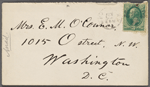 Mrs. E. M. O'Connor
1015 O street, N.W.
Washington
D.C.